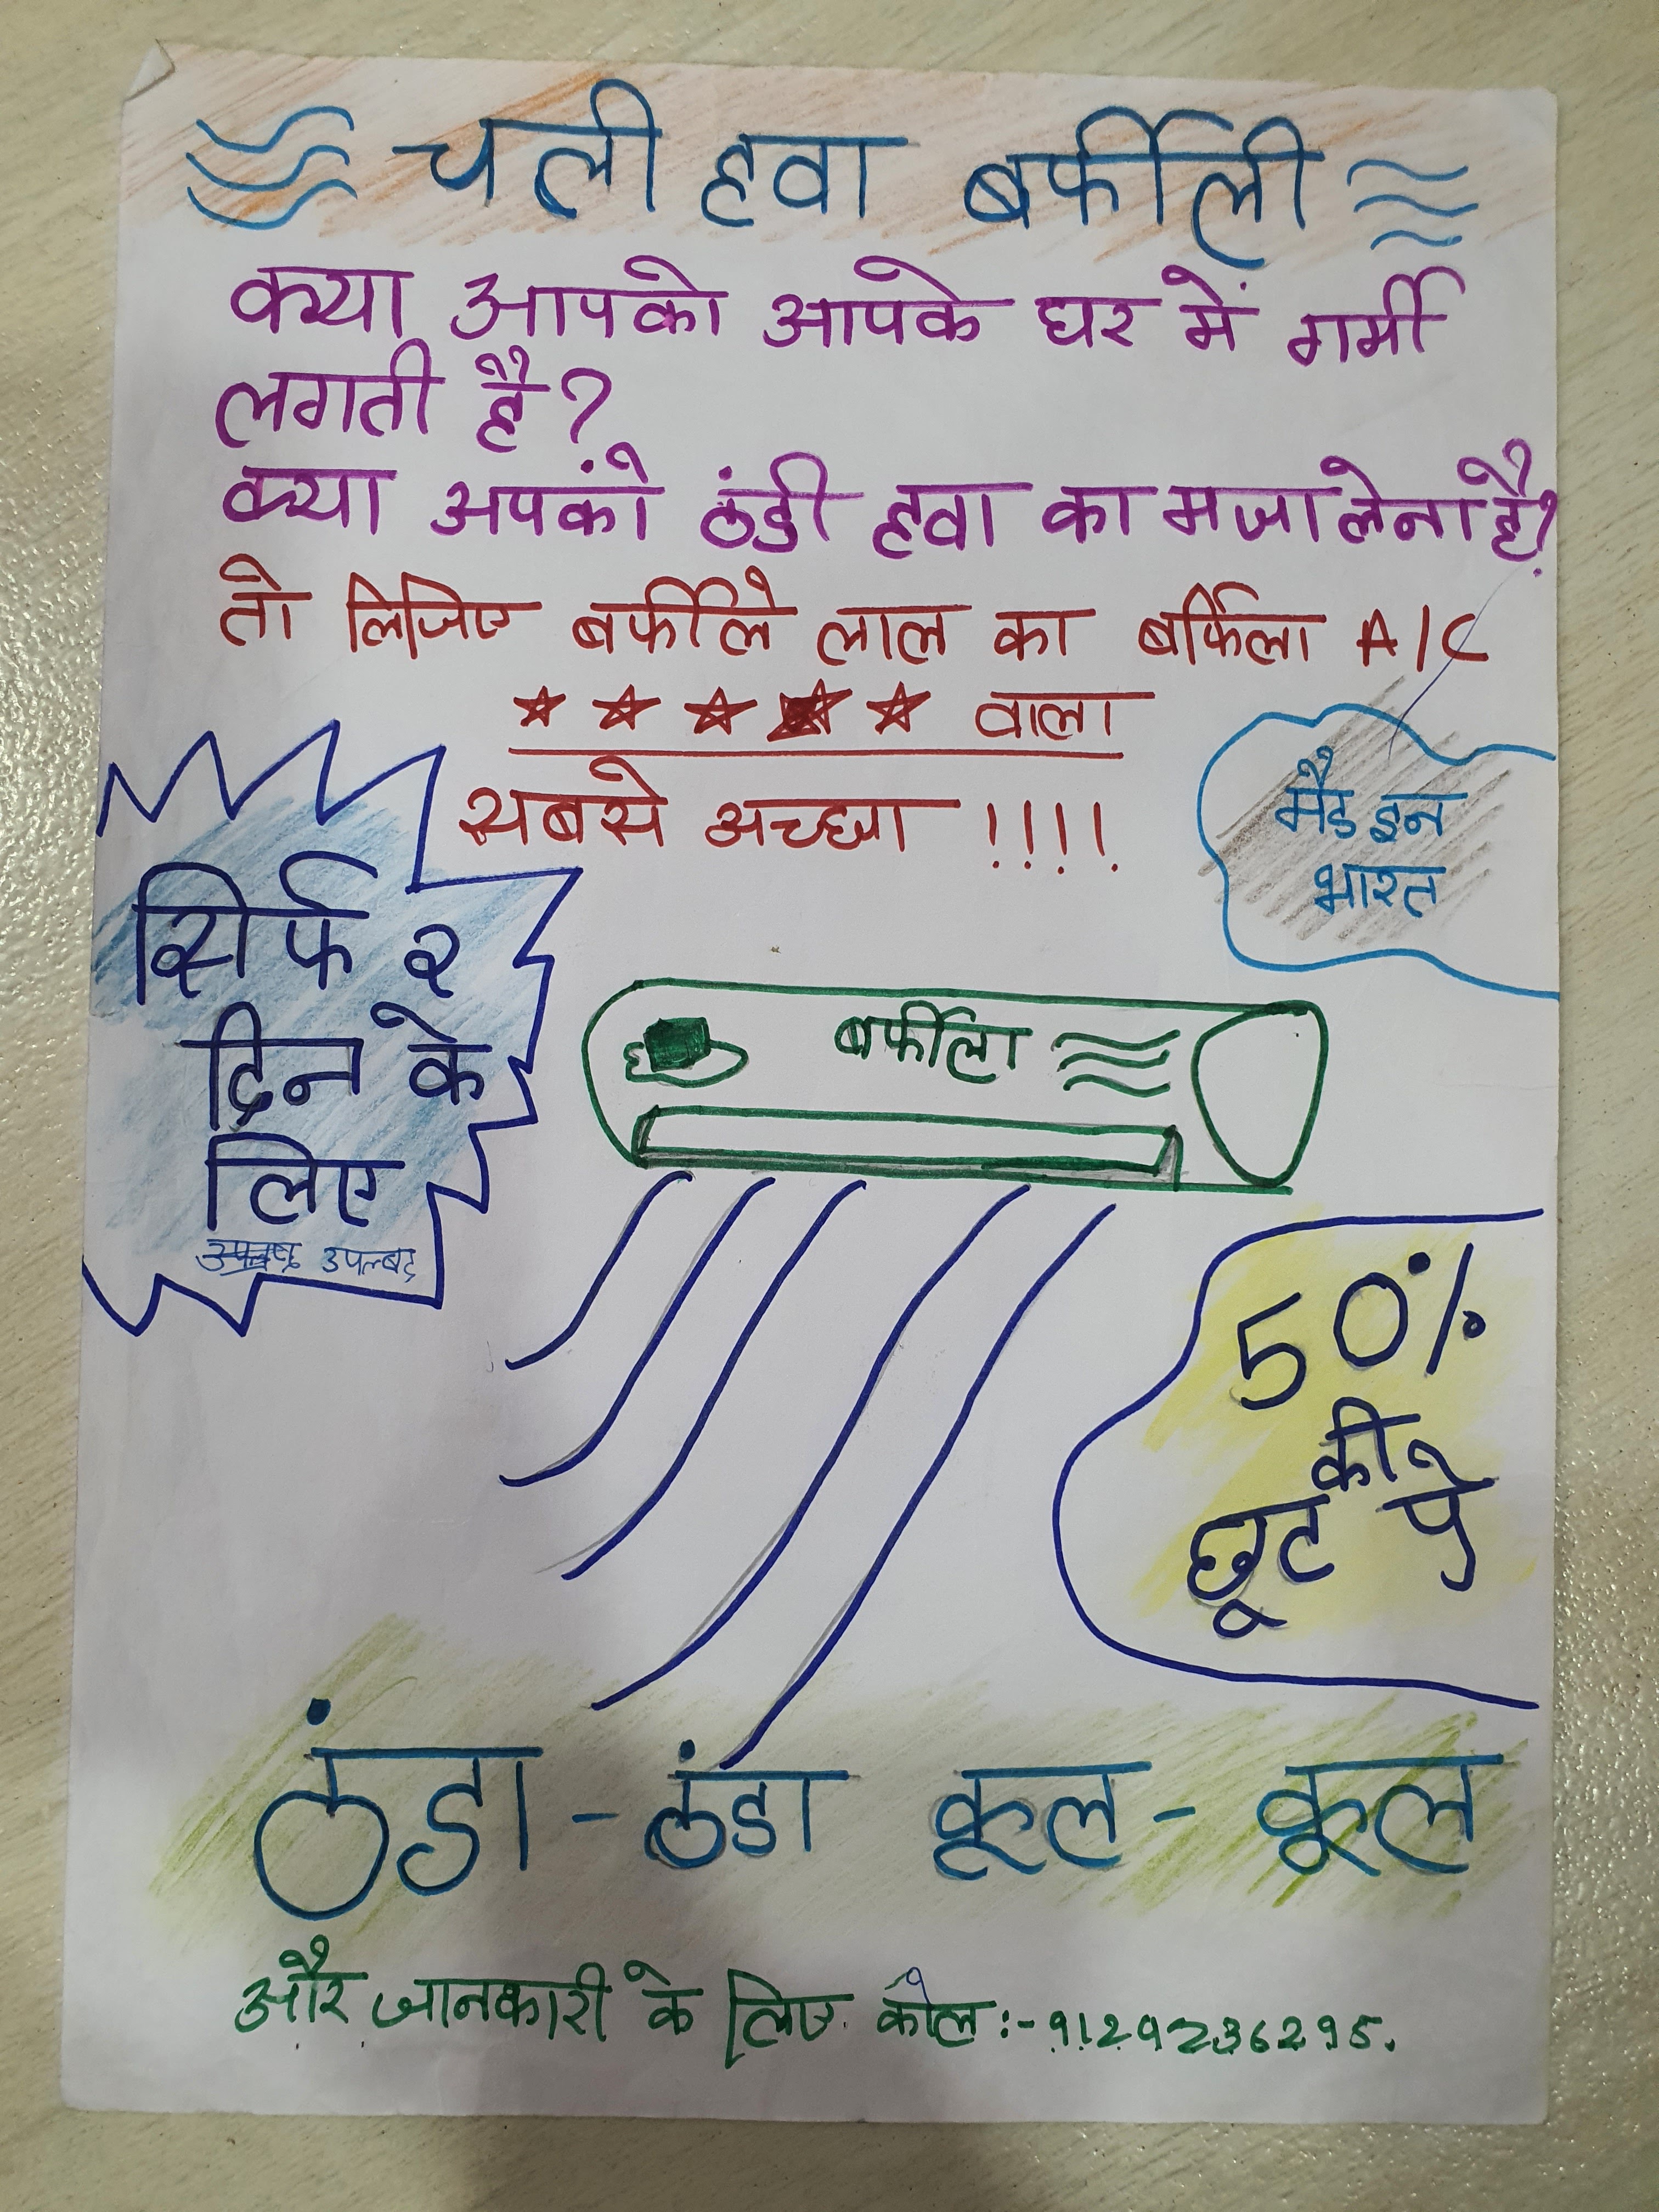 चली हवा बर्फीली
क्या आपको आपके घर में गर्मी
लगती है?
क्या अपकों ठंडी हवा का मजा लेना है?
तो लिजिए बर्फीले लाल का बर्फिला A/C
★ ★ ★ ★ ★ वाला
सबसे अच्छा !!!!
मैड इन
भारत
सिर्फ २
दिन के
लिए
उपल्बद्
बर्फीला
50%
की
छूट पे
ठंडा - ठंडा कूल - कूल
और जानकारी के लिए कॅाल :- 9129236295.